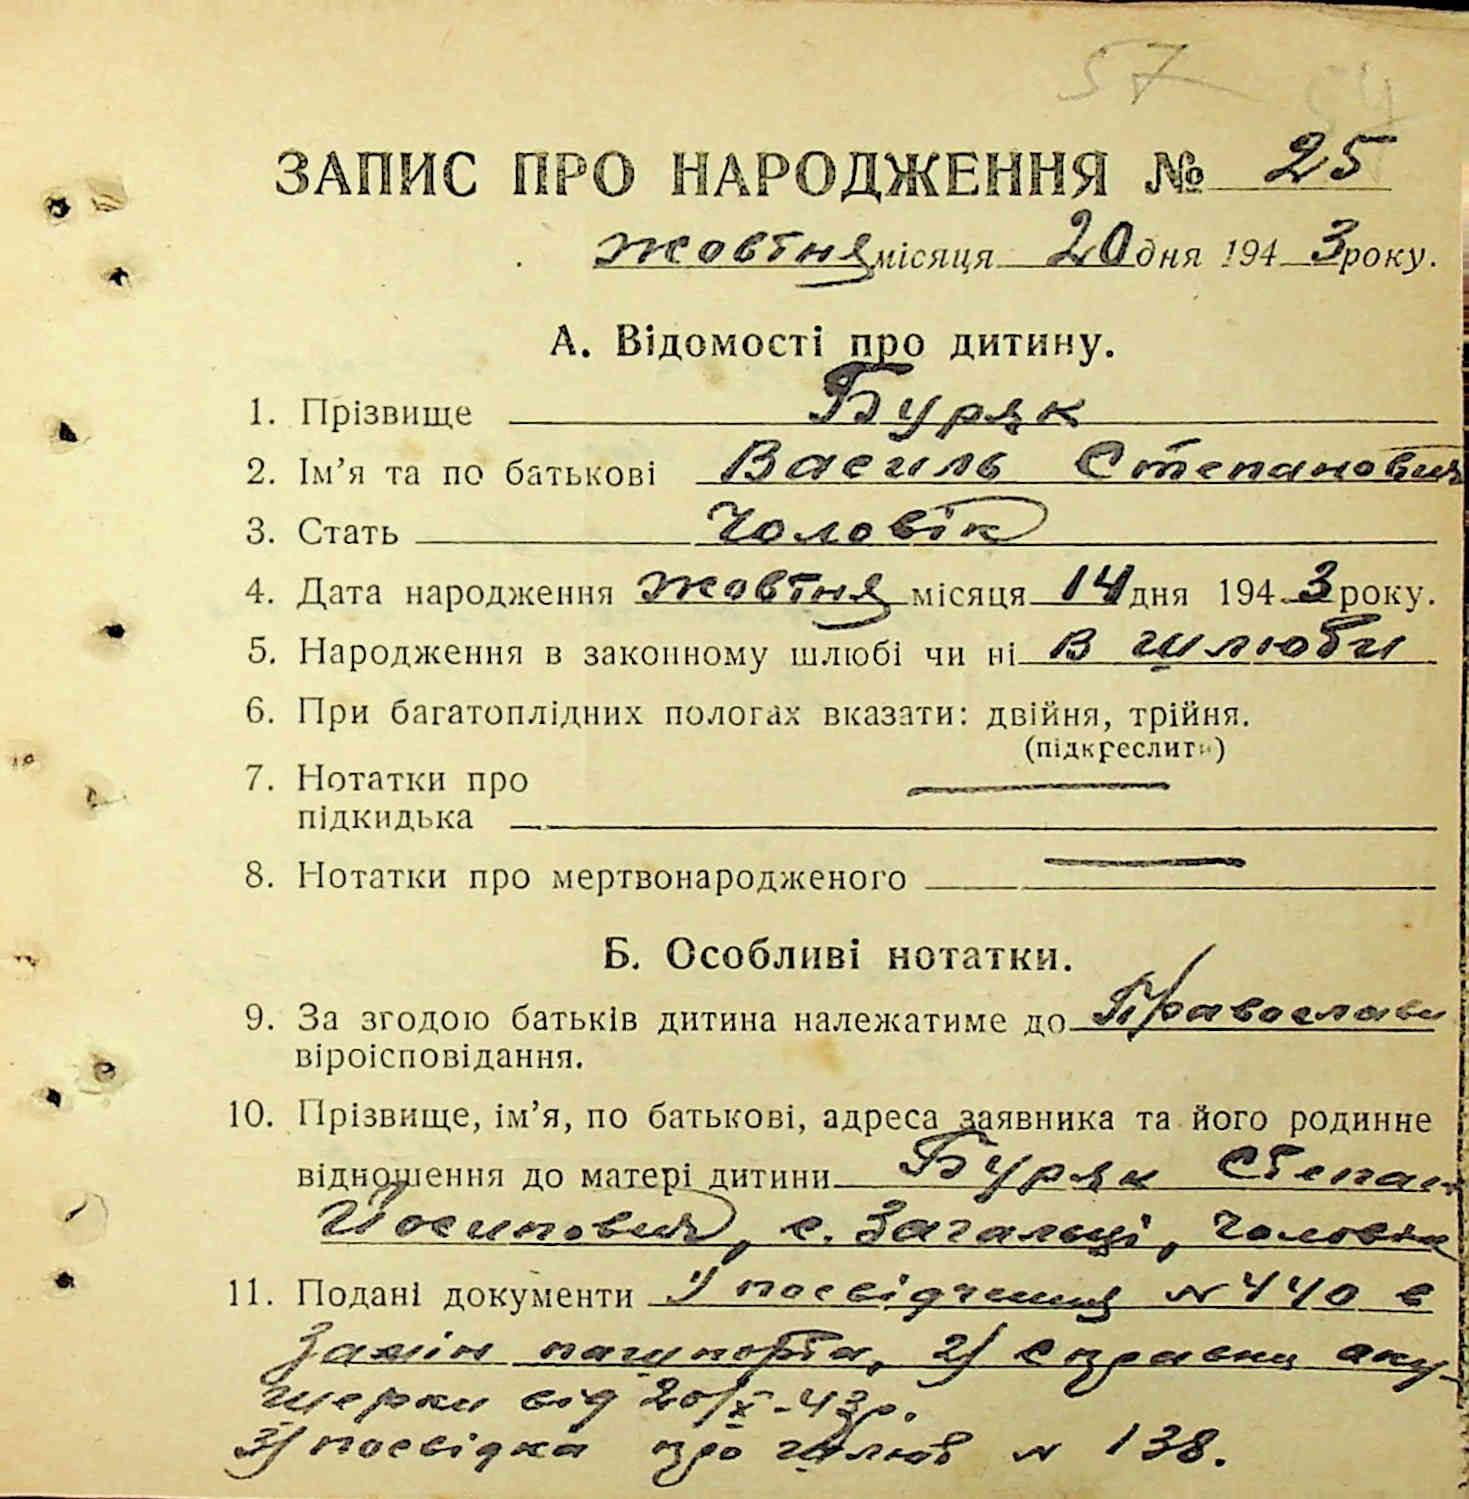 57 54
ЗАПИС ПРО НАРОДЖЕННЯ № 25
жовтня місяця 20 дня 1943 року.
А. Відомості про дитину.
1. Прізвище Буряк
2. Ім’я та по батькові Василь Степанович
3. Стать Чоловік
4. Дата народження жовтня місяця 14 дня 1943 року.
5. Народження в законному шлюбі чи ні в шлюби
6. При багатоплідних пологах вказати: двійня, трійня.
(підкреслити)
7. Нотатки про
підкидька
8. Нотатки про мертвонародженого
Б. Особливі нотатки.
9. За згодою батьків дитина належатиме до Православн
віроісповідання.
10. Прізвище, ім’я, по батькові, адреса заявника та його родинне
відношення до матері дитини Буряк Степан
Йосипович, с. Загальці, Чоловік
11. Подані документи 1) посвідчення № 440 в
замін пашпорта, 2) справки аку-
шерки від 20/X-43р.
3) посвідка про шлюб № 138.